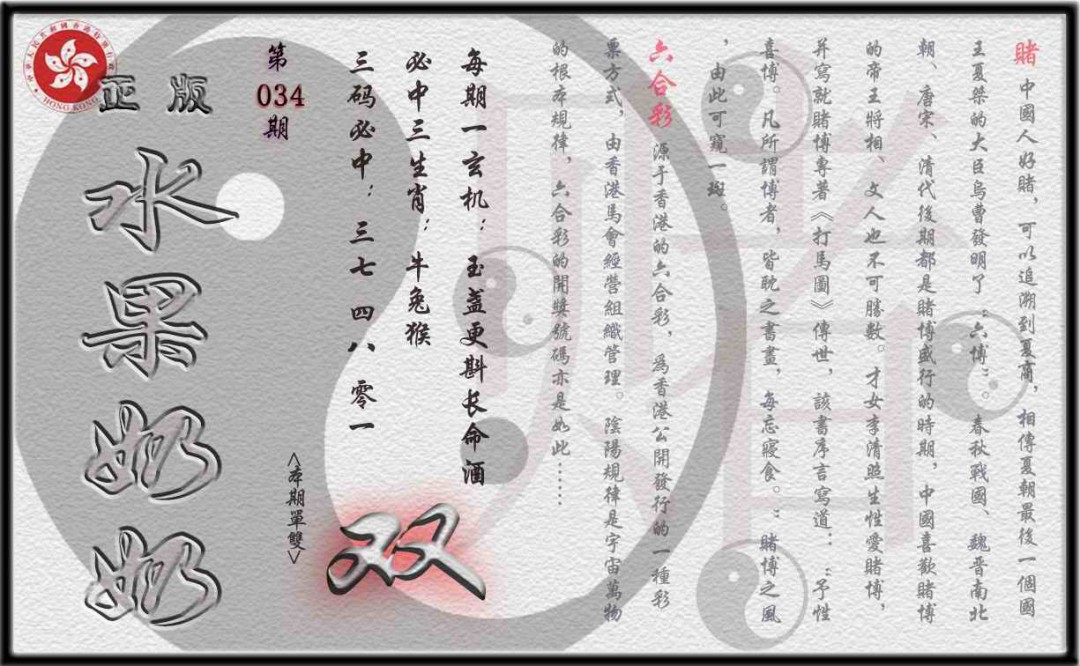 賭 中國人好賭，可以追溯到夏商，相傳夏朝最後一個國
王夏桀的大臣烏曹發明了“六博”。春秋戰國、魏晉南北
朝、唐宋、清代後期都是賭博盛行的時期，中國喜歡賭博
的帝王將相、文人也不可勝數。才女李清照生性愛賭博，
并寫就賭博專著《打馬圖》傳世，該書序言寫道：“予性
喜博。凡所謂博者，皆耽之晝晝，每忘寢食。”賭博之風
，由此可窺一斑。
六合彩 源于香港的六合彩，為香港公開發行的一種彩
票方式，由香港馬會經營組織管理。陰陽規律是宇宙萬物
的根本規律，六合彩的開獎號碼亦是如此……
每期一玄机：玉盏更斟长命酒
必中三生肖：牛兔猴
三码必中：三七 四八 零一
双
<本期單雙>
第
034
期
正版
水果奶奶
HONG KONG